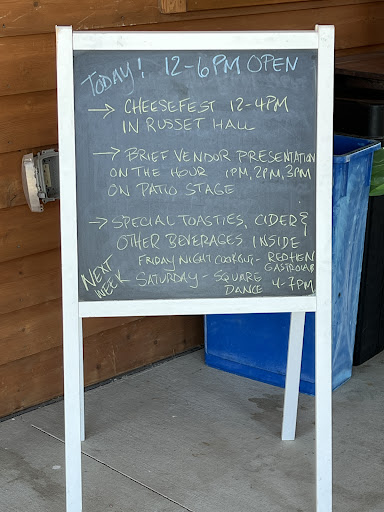 TODAY! 12-6PM OPEN
→ CHEESEFEST 12-4PM
IN RUSSET HALL
→ BRIEF VENDOR PRESENTATION
ON THE HOUR 1PM, 2PM, 3PM
ON PATIO STAGE
→ SPECIAL TOASTIES, CIDER &
OTHER BEVERAGES INSIDE
NEXT
WEEK
FRIDAY NIGHT COOKING - REDHEN
GASTROLAB
SATURDAY - SQUARE
DANCE 4-7PM